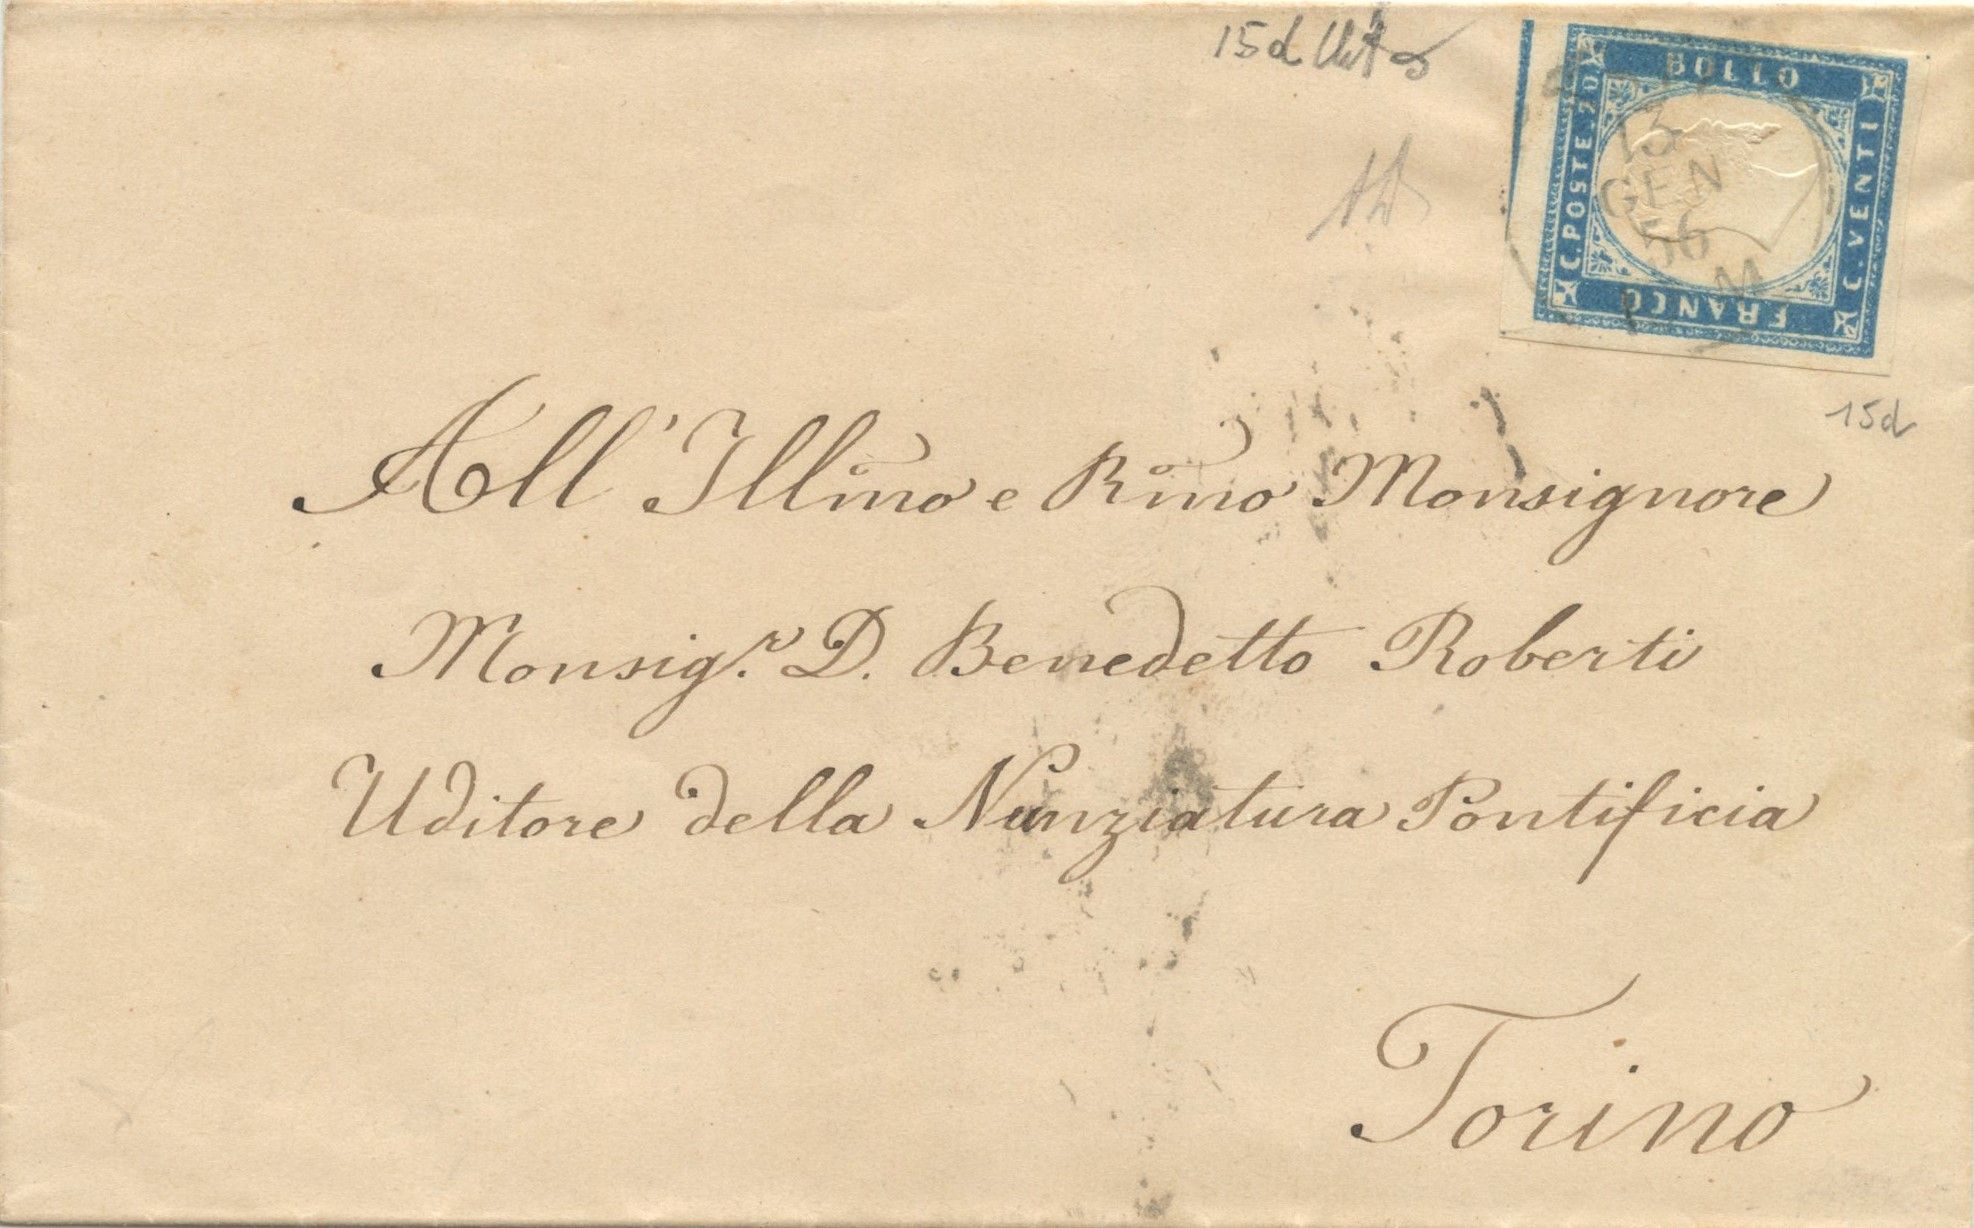 15d
BOLLO
C. POSTE. 20
C. VENTI
FRANCO
13
GEN
56
M
15d
All' Illmo e Rmo Monsignore
Monsig.r D. Benedetto Roberti
Uditore della Nunziatura Pontificia
Torino